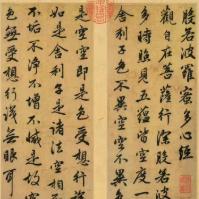 般若波羅蜜多心經
觀自在菩薩行深般若波
多時照見五蘊皆空度一
舍利子色不異空空不異
是空空即是色受想行
如是舍利子是諸法空相
不垢不淨不增不減是故空
色無受想行識無眼耳